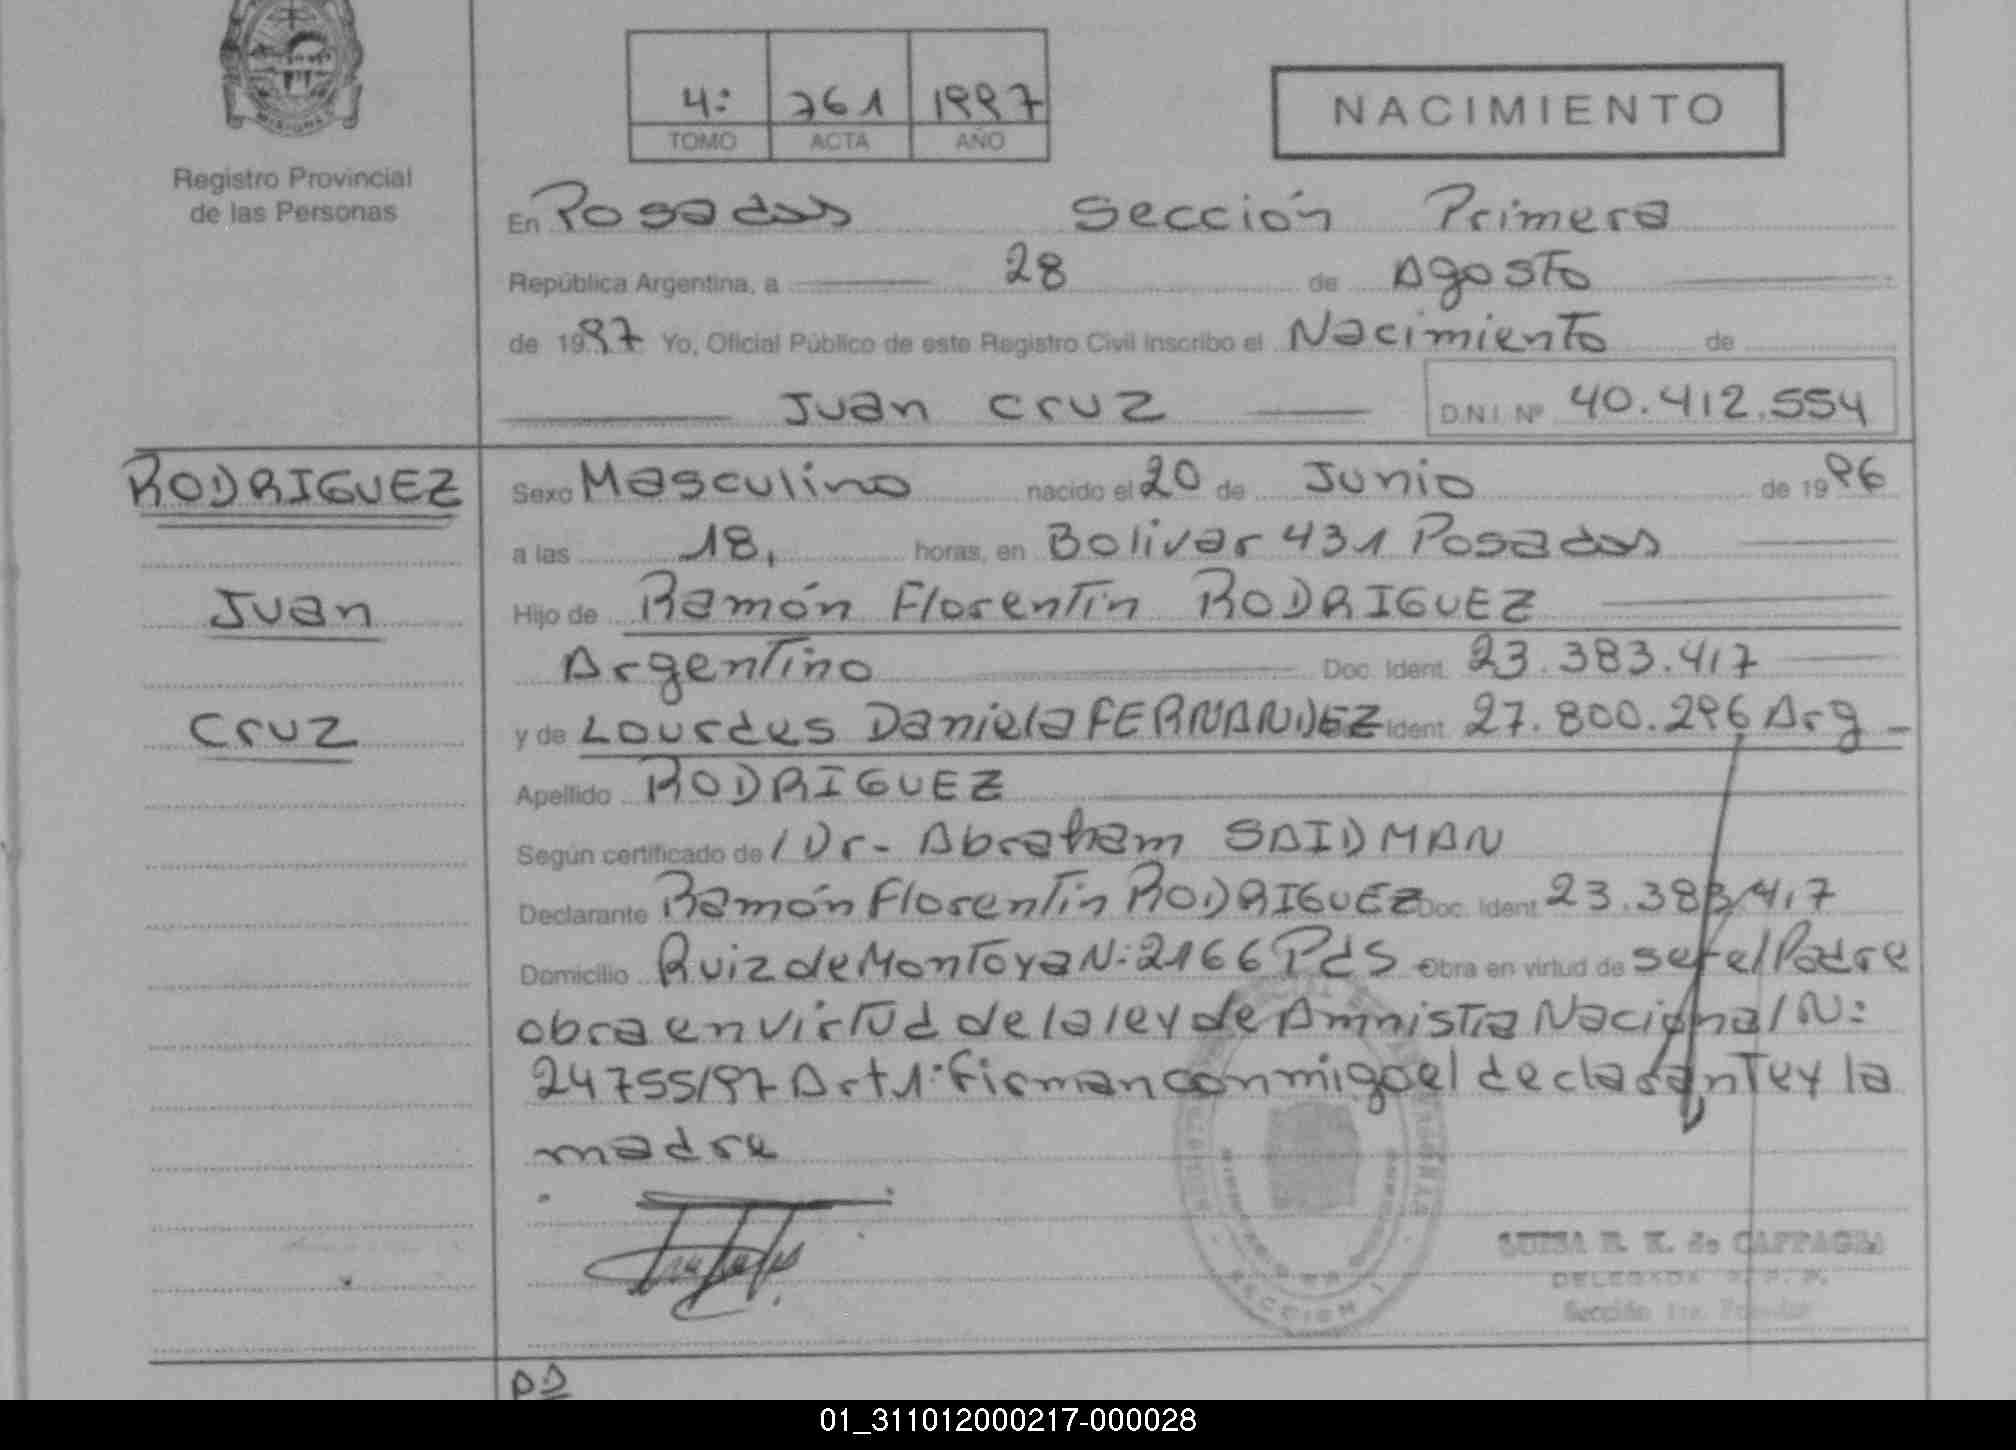 MISIONES
Registro Provincial
de las Personas
4: 761 1997
TOMO ACTA AÑO
NACIMIENTO
En Posadas Sección Primera
República Argentina, a 28 de Agosto
de 1997 Yo, Oficial Público de este Registro Civil inscribo el Nacimiento de
Juan Cruz D.N.I. Nº 40.412.554
RODRIGUEZ
Juan
Cruz
Sexo Masculino nacido el 20 de Junio de 1996
a las 18, horas, en Bolivar 431 Posadas
Hijo de Ramón Florentin RODRIGUEZ
Argentino Doc. Ident. 23.383.417
y de Lourdes Daniela FERNANDEZ Ident. 27.800.296 Arg
Apellido RODRIGUEZ
Según certificado de / Dr- Abraham SAIDMAN
Declarante Ramón Florentin RODRIGUEZ Doc. Ident. 23.383.417
Domicilio Ruiz de Montoya N: 2166 Pds Obra en virtud de ser el Padre
obra en virtud de la ley de Amnistia Nacional N:
24755/97 Art 1: firman conmigo el declarante y la
madre
LUISA R. K. de CAFFAGNI
DELEGADA R. P. P.
Sección 1ra.
SECCION 1
01_311012000217-000028